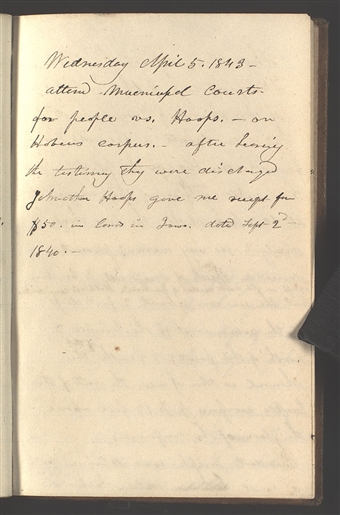 Wednesday April 5. 1843 –
attend Municipal Courts.
for people vs. Hoops. – on
Habeus corpus. – after hearing
the testimony they were discharged
Johnathan Hoops gave me receipt for
$50. in lands in Iowa. date Sept 2d
1840. –